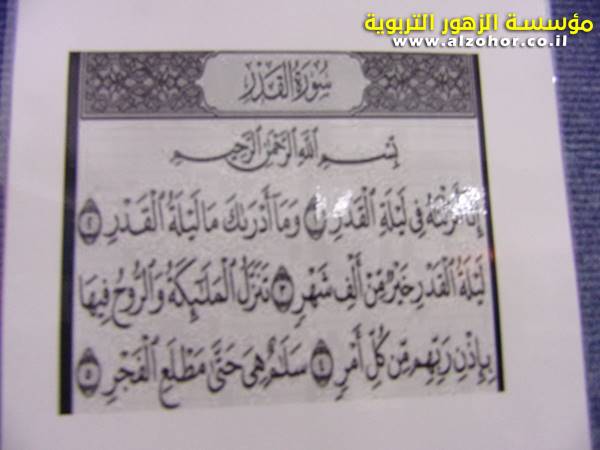 مؤسسة الزهور التربوية
www.alzohor.co.il
سُورَةُ القَدْرِ
بِسْمِ اللَّهِ الرَّحْمَٰنِ الرَّحِيمِ
إِنَّا أَنزَلْنَاهُ فِي لَيْلَةِ الْقَدْرِ ١ وَمَا أَدْرَاكَ مَا لَيْلَةُ الْقَدْرِ ٢
لَيْلَةُ الْقَدْرِ خَيْرٌ مِّنْ أَلْفِ شَهْرٍ ٣ تَنَزَّلُ الْمَلَائِكَةُ وَالرُّوحُ فِيهَا
بِإِذْنِ رَبِّهِم مِّن كُلِّ أَمْرٍ ٤ سَلَامٌ هِيَ حَتَّىٰ مَطْلَعِ الْفَجْرِ ٥